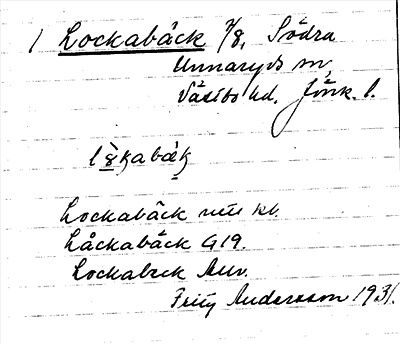 1 Lockabäck 7/8, Södra
Unnaryds sn,
Västbo hd. Jönk. l.
Lockabäck
Låckabäck G19.
Lockabeck
Fritz Andersson 1931.